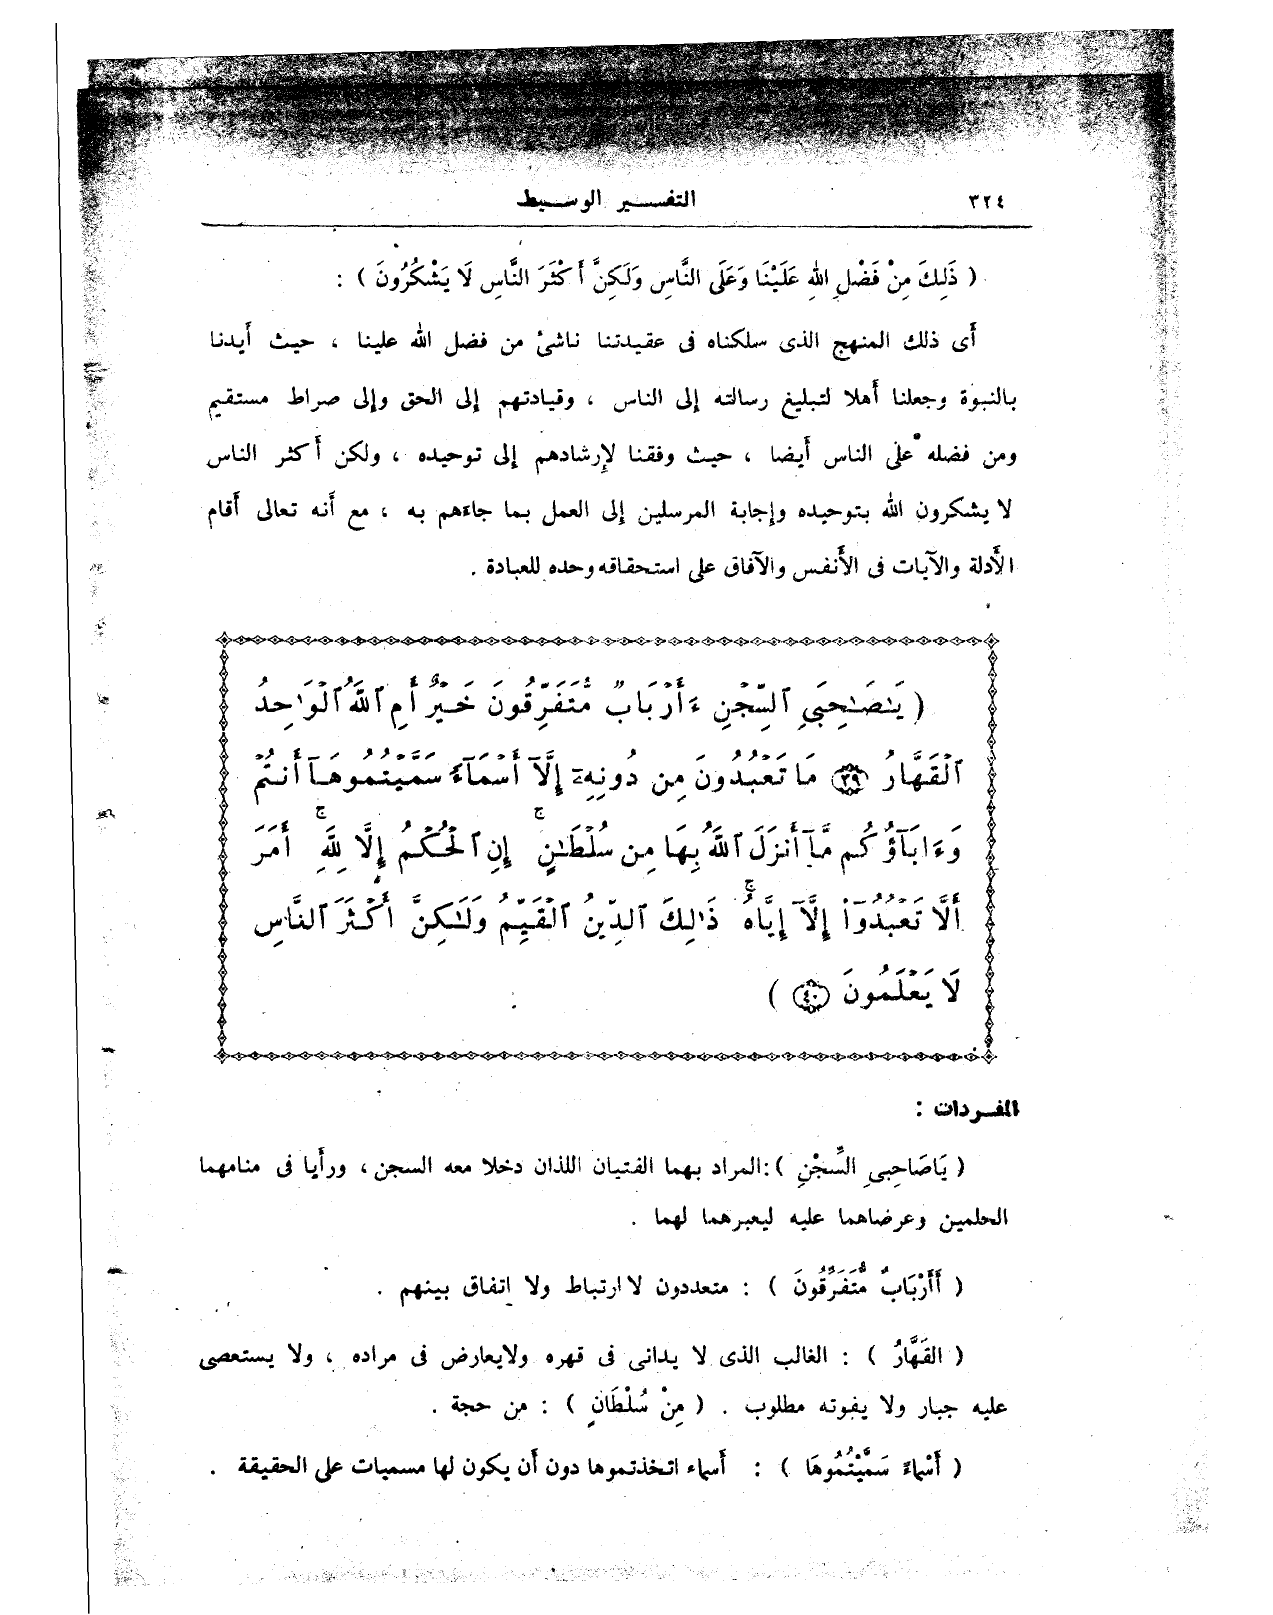 ٣٢٤ التفسير الوسيط
( ذَلِكَ مِنْ فَضْلِ اللهِ عَلَيْنَا وَعَلَى النَّاسِ وَلَكِنَّ أَكْثَرَ النَّاسِ لَا يَشْكُرُونَ ) :
أى ذلك المنهج الذى سلكناه فى عقيدتنا ناشئ من فضل الله علينا ، حيث أيدنا
بالنبوة وجعلنا أهلا لتبليغ رسالته إلى الناس ، وقيادتهم إلى الحق وإلى صراط مستقيم
ومن فضله على الناس أيضا ، حيث وفقنا لإرشادهم إلى توحيده ، ولكن أكثر الناس
لا يشكرون الله بتوحيده وإجابة المرسلين إلى العمل بما جاءهم به ، مع أنه تعالى أقام
الأدلة والآيات فى الأنفس والآفاق على استحقاقه وحده للعبادة .
( يَـٰصَـٰحِبَىِ ٱلسِّجْنِ ءَأَرْبَابٌ مُّتَفَرِّقُونَ خَيْرٌ أَمِ ٱللَّهُ ٱلْوَٰحِدُ
ٱلْقَهَّارُ ٣٩ مَا تَعْبُدُونَ مِن دُونِهِۦٓ إِلَّآ أَسْمَآءً سَمَّيْتُمُوهَآ أَنتُمْ
وَءَابَآؤُكُم مَّآ أَنزَلَ ٱللَّهُ بِهَا مِن سُلْطَـٰنٍ ۚ إِنِ ٱلْحُكْمُ إِلَّا لِلَّهِ ۚ أَمَرَ
أَلَّا تَعْبُدُوٓا۟ إِلَّآ إِيَّاهُ ۚ ذَٰلِكَ ٱلدِّينُ ٱلْقَيِّمُ وَلَـٰكِنَّ أَكْثَرَ ٱلنَّاسِ
لَا يَعْلَمُونَ ٤٠ )
المفردات :
( يَاصَاحِبىِ السِّجْنِ ) : المراد بهما الفتيان اللذان دخلا معه السجن ، ورأيا فى منامهما
الحلمين وعرضاهما عليه ليعبرهما لهما .
( أَأَرْبَابٌ مُّتَفَرِّقُونَ ) : متعددون لا ارتباط ولا اتفاق بينهم .
( القَهَّارُ ) : الغالب الذى لا يدانى فى قهره ولايعارض فى مراده ، ولا يستعصى
عليه جبار ولا يفوته مطلوب . ( مِنْ سُلْطَانٍ ) : من حجة .
( أَسْمَاءً سَمَّيْتُمُوهَا ) : أسماء اتخذتموها دون أن يكون لها مسميات على الحقيقة .